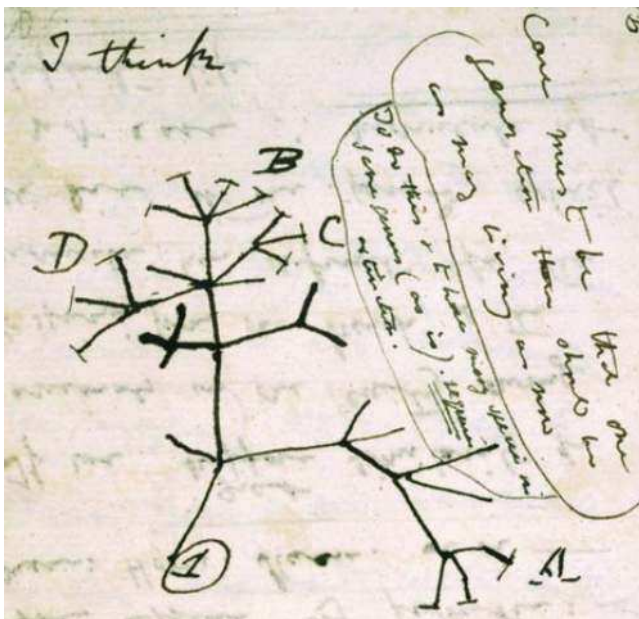 I think
B
D
C
1
A
Case must be that one
generation then should be
as many living as now
To do this & to have many species in
same genus (as is). requires
extinction.